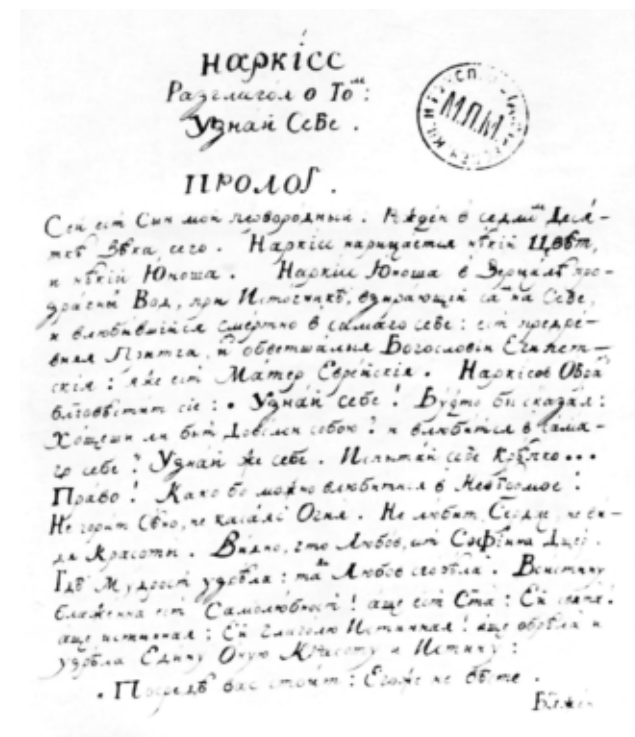 НАРКІСС
Разглагол о То^м:
Узнай Себе.
ПРОЛОГ.
Сей ест Сын мой первородный. Рожден в седмом Деся-
ткѣ Вѣка сего. Наркісс нарицается нѣкій Цвѣт,
и нѣкій Юноша. Наркісс Юноша в Зерцалѣ про-
зрачных Вод, при Источникѣ, взирающій сам на Себе,
и влюбившійся смертно в самаго себе: ест предре-
вняя Притча, из обветшалыя Богословіи Египет-
скія: яже ест Матер Еврейскія. Наркісов Образ
благовѣстит сіе: Узнай себе! Будто бы сказал:
Хощеши ли быт Доволен собою? и влюбится в сама-
го себе? Узнай же себе. Испытай себе Крѣпко...
Право! Како бо можно влюбиться в Невѣдомое?
Не горит Сѣно, не касаяс Огня. Не любит Сердце, не ви-
дя Красоты. Видно, что Любов ест Софіина Дщер.
Гдѣ Мудрост узрѣла: там Любов сгорѣла. Воистину
блаженна ест Самолюбност! аще ест Свята: Ей свята!
аще истинная: Ей глаголю Истинная! аще обрѣла и
узрѣла Едину Оную Красоту и Истину:
Посредѣ вас стоит: Егоже не вѣсте.
Блжен